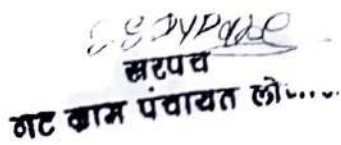 सरपंच
गट ग्राम पंचायत लो.....